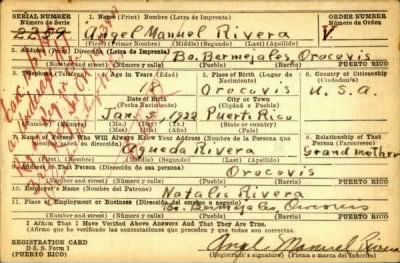 SERIAL NUMBER 1. NAME (Print) Nombre (Letra de Imprenta) ORDER NUMBER
Número de Serie Número de Orden
2259 Angel Manuel Rivera V.
(First) (Primer Nombre) (Middle) (Segundo) (Last) (Apellido)
2. ADDRESS (Print) Dirección (Letra de Imprenta)
Bo. Bermejales Orocovis
(Number and street) (Número y calle) (Town) Pueblo (Barrio) PUERTO RICO
3. Telephone (Teléfono) 4. Age in Years (Edad) 5. Place of Birth (Lugar de Nacimiento) 6. Country of Citizenship (Ciudadanía)
18 Orocovis U.S.A.
Date of Birth (Fecha Nacimiento) City or Town (Ciudad o Pueblo)
Jan. 5, 1922 Puerto Rico
(Mo.) (Day) (Yr.) (State or country)
7. Name of Person Who Will Always Know Your Address (Nombre de la Persona que 8. Relationship of That Person (Parentesco)
Agueda Rivera Grand mother
(First) (Middle) (Last) (Apellido)
9. Address of That Person (Dirección de esa persona)
Orocovis
(Number and street) (Número y calle) (Town) Pueblo (Barrio) PUERTO RICO
10. Employer's Name (Nombre del Patrono)
Natalio Rivera
11. Place of Employment or Business (Dirección del empleo o negocio)
Bo. Bermejales Orocovis
(Number and street) (Número y calle) (Town) Pueblo (Barrio) PUERTO RICO
I Affirm That I Have Verified Above Answers And That They Are True.
(Afirmo que he verificado las contestaciones que preceden y que éstas son correctas.
REGISTRATION CARD Angel Manuel Rivera
D. S. S. Form 1 (Registrant's signature) (Firma o marca del inscrito)
(PUERTO RICO)